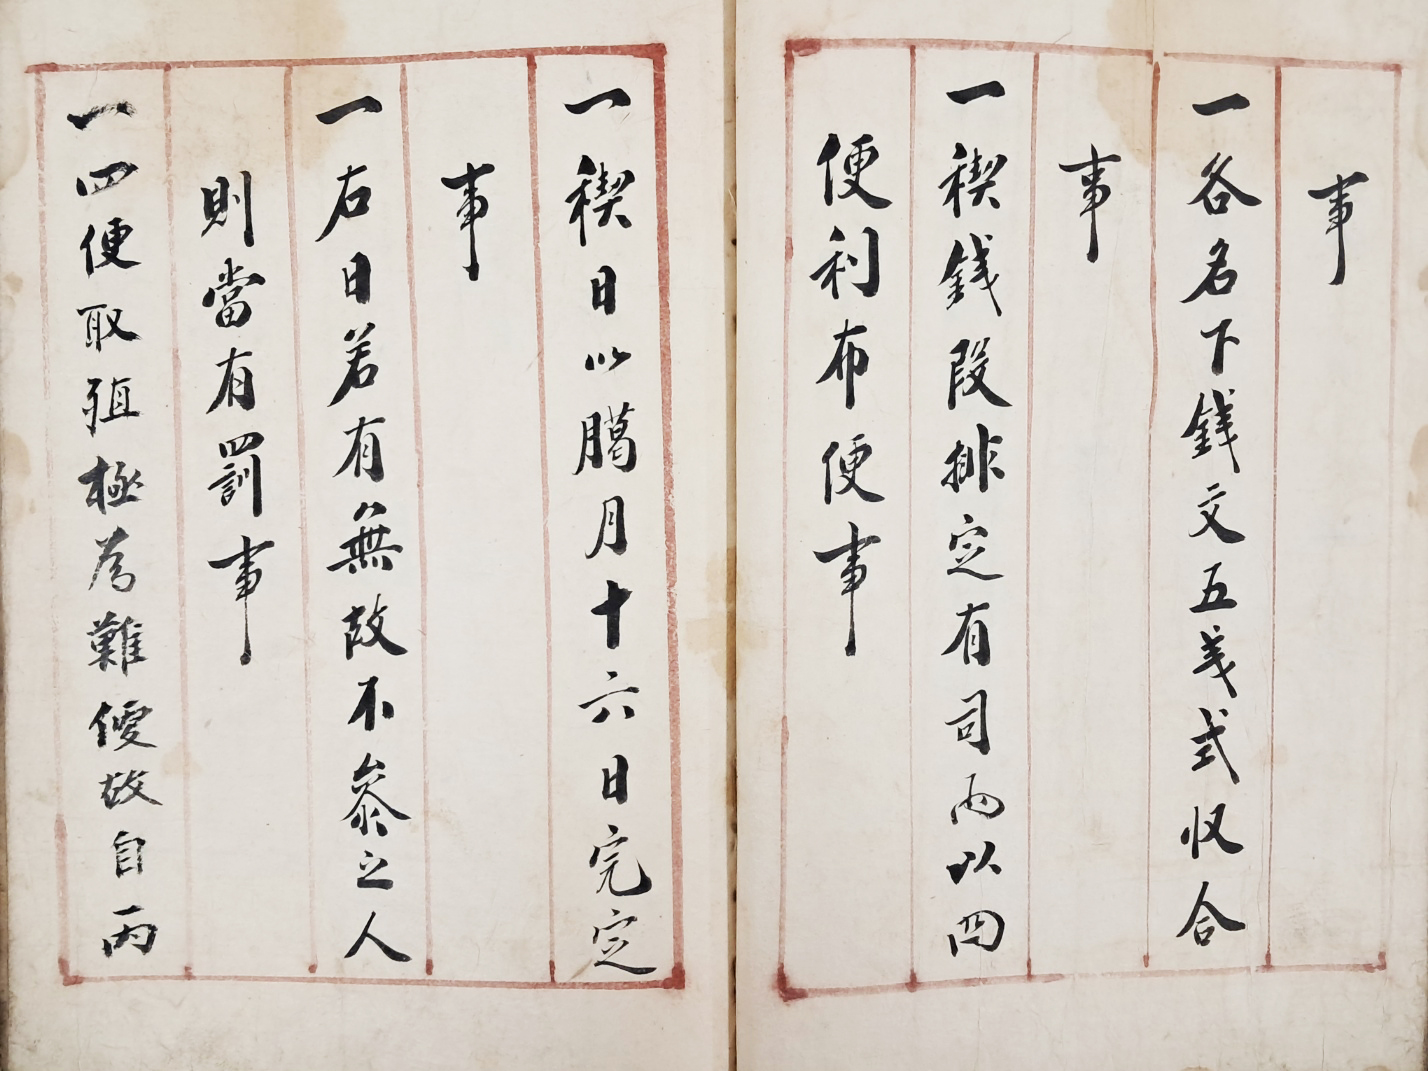 事
一各名下錢文五戔式収合
事
一稧錢段排定有司而以四
便利布便事
一稧日以臈月十六日完定
事
一右日若有無故不參之人
則當有罰事
一四便取殖極爲難便故自丙